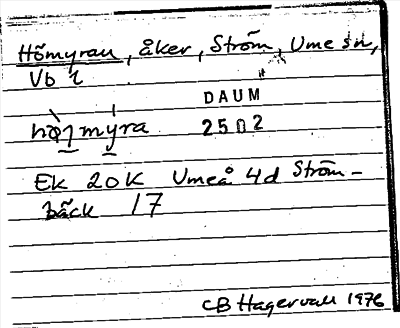 Hömyran, åker, Ström, Ume sn,
Vb l
DAUM
2502
myra
Ek 20K Umeå 4d Ström-
bäck 17
CB Hagervall 1976